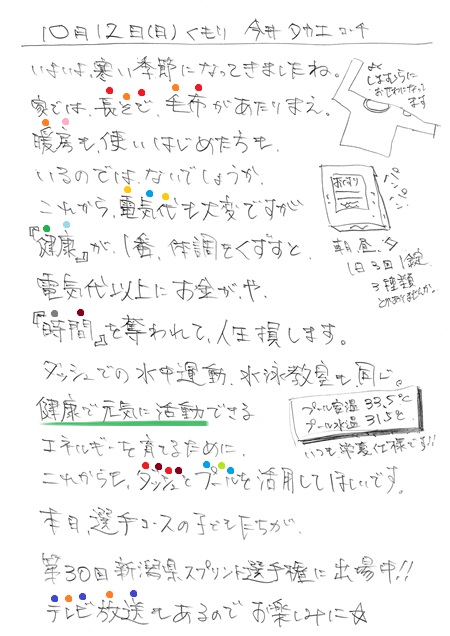 10月12日(日) くもり 今井タカエ コーチ
いよいよ、寒い季節になってきましたね。
よく
しまむらに
おせわになって
ます
家では、長そで、毛布があたりまえ。
暖房も、使いはじめた方も、
いるのでは、ないでしょうか。
おくすり
パンパン。
これから、電気代も大変ですが
『健康』が、1番、体調をくずすと、
朝、昼、夕
1日3回1錠
3種類
電気代以上にお金がや、
『時間』を奪われて、人生損します。
ダッシュでの水中運動、水泳教室も、同じ。
健康で元気に活動できる
プール室温 33.5℃
プール水温 31.5℃
いつも常夏仕様です!!
エネルギーを育てるために、
これからも、ダッシュとプールを活用してほしいです。
本日、選手コースの子どもたちが、
第30回新潟県スプリント選手権に出場中!!
テレビ放送もあるのでお楽しみに☆